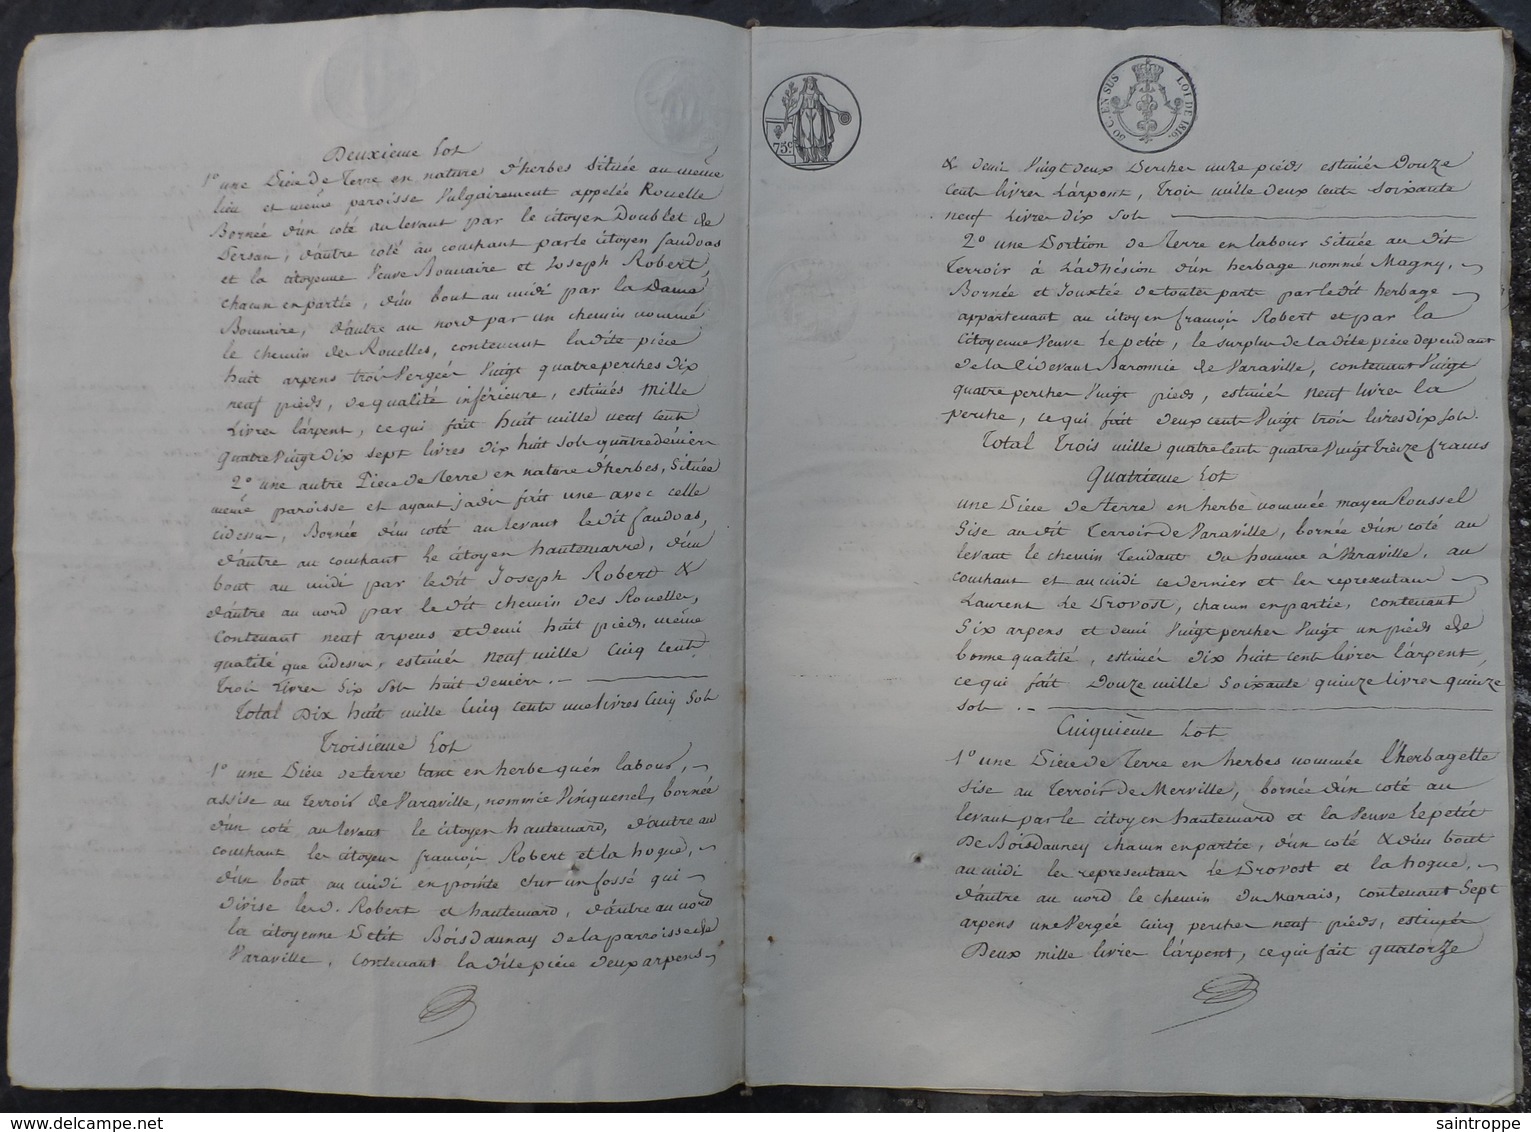 Deuxieme Lot
1º une Pièce de Terre en nature d'herbes Située au même
lieu et même paroisse Vulgairement appelée Rouelle
Bornée d'un coté au levant par le citoyen Doublet de
Persan, d'autre coté au couchant par le citoyen Sandoas
et la citoyenne Veuve Bonnaire et Joseph Robert,
chacun en partie, d'un bout au midi par la Dame
Bonnaire, d'autre au nord par un chemin nommé
le chemin de Rouelles, contenant la dite pièce
huit arpens trois Vergées Vingt quatre perches dix
neuf pieds, de qualité inférieure, estimés Mille
Livres l'arpent, ce qui fait huit mille neuf cent
quatre Vingt dix sept livres dix huit sols quatre déniers
2º une autre Pièce de Terre en nature d'herbes, Située
même paroisse et ayant jadis fait une avec celle
cidessus, Bornée d'un coté au levant le dit Sandoas,
d'autre au couchant Le citoyen hautemarre, d'un
bout au midi par le dit Joseph Robert &
d'autre au nord par le dit chemin des Rouelles,
Contenant neuf arpens et demi huit pieds, même
qualité que cidessus, estimés Neuf mille Cinq cent
Trois Livres Six sols huit deniers . -
Total Dix huit mille Cinq cents une livres Cinq Sols
Troisieme Lot
1º une Pièce de terre tant en herbe qu'en labour, -
assise au Terroir de Varaville, nommée Pinquenel, bornée
d'un coté au levant le citoyen hautemard, d'autre au
couchant les citoyens françois Robert et la hogue, -
d'un bout au midi en pointe sur un fossé qui -
divise les d. Robert et hautemard, d'autre au nord
la citoyenne Petit Boisdaunay de la parroisse de
Varaville, Contenant la dite pièce deux arpens -
75c
50 C. EN SUS LOI DE 1816.
& demi Vingt deux Perches onze pieds estimés Douze
Cent livres L'arpent, Trois mille deux cent soixante
neuf Livres Dix Sols
2º une Portion de Terre en labour Située au dit
Terroir à L'adhésion d'un herbage nommé Magny, -
Bornée et Jouxtée de toutes parts par le dit herbage -
appartenant au citoyen françois Robert et par la
Citoyenne Veuve Le petit, le surplus de la dite pièce dependant
de la Cidevant Baronnie de Varaville, contenant Vingt
quatre perches Vingt pieds, estimées Neuf livres la
perche, ce qui fait deux cent Vingt trois livres dix sols.
Total Trois mille quatre Cents quatre Vingt Treize francs
Quatrieme Lot
une Pièce de terre en herbe nommée moyen Roussel
Sise au dit Terroir de Varaville, bornée d'un coté au
levant le chemin Tendant du homme à Varaville, au
couchant et au midi ce dernier et les representans -
Laurent Le Provost, chacun en partie, contenant
Six arpens et demi Vingt perches Vingt un pieds de
bonne qualité, estimés dix huit cents livres l'arpent,
ce qui fait Douze mille Soixante quinze livres quinze
sols . -
Cinquième Lot
1º une Pièce de Terre en herbes nommée l'herbagette
Sise au Terroir de Merville, bornée d'un coté au
levant par le citoyen hautemard et la Veuve Le petit
De Boisdauney chacun en partie, d'un coté & d'un bout
au midi les representans Le Provost et la hogue, -
d'autre au nord le chemin du Marais, contenant Sept
arpens une Vergée Cinq perches neuf pieds, estimées
Deux mille livres l'arpent, ce qui fait quatorze
saintroppe